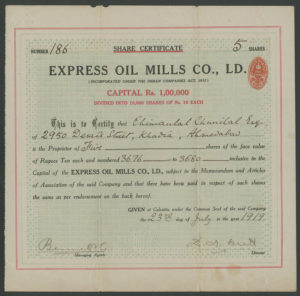 SHARE CERTIFICATE
NUMBER 186 5 SHARES
EXPRESS OIL MILLS CO., LD.
(INCORPORATED UNDER THE INDIAN COMPANIES ACT 1913)
CAPITAL Rs. 1,00,000
DIVIDED INTO 10,000 SHARES OF Rs. 10 EACH
This is to Certify that Chimanlal Chunilal Esq
of 2950 Street, Khadia, Ahmedabad
is the Proprietor of Five shares of the face value
of Rupees Ten each and numbered 3676 to 3680 inclusive in the
Capital of the EXPRESS OIL MILLS CO., LD., subject to the Memorandum and Articles
of Association of the said Company and that there have been paid in respect of such shares
the sums as per endorsement on the back hereof.
GIVEN at Calcutta under the Common Seal of the said Company
the 23rd day of July in the year 1919.
Managing Agents
Director